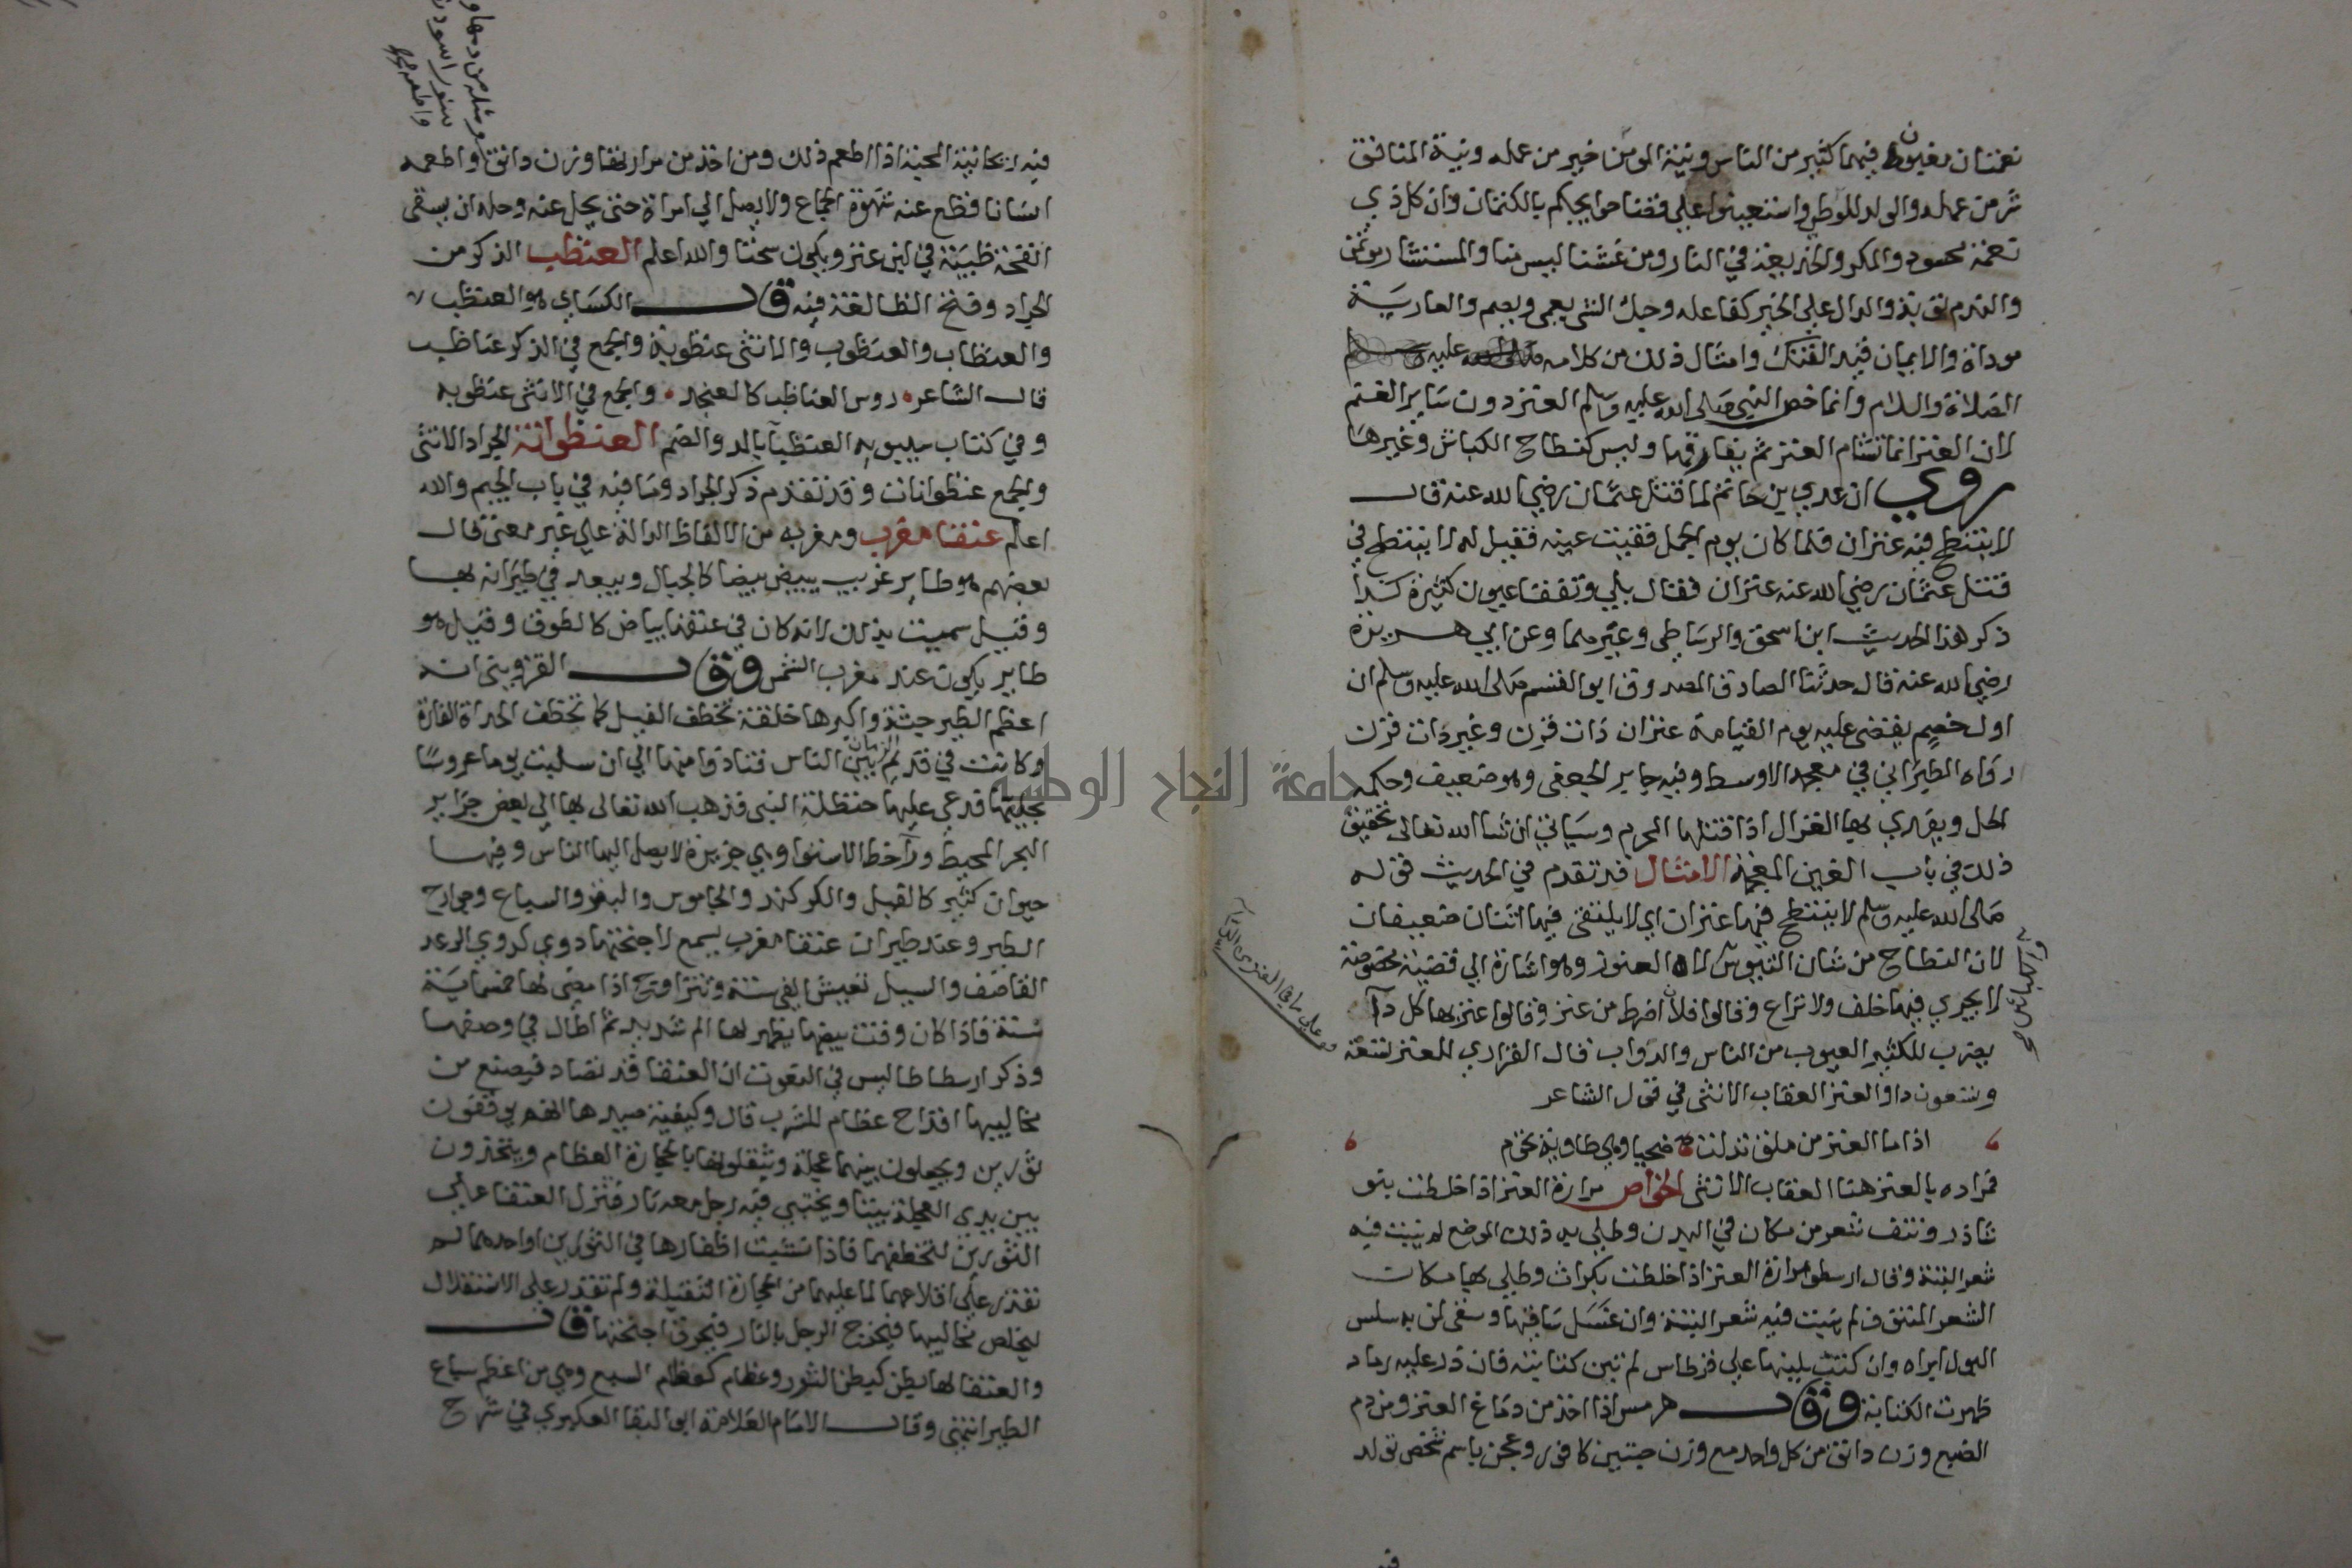 نعمتان مغبون فيهما كثير من الناس ونية المومن خير من عمله ونية المنافق
شر من عمله والولد للوطي واستعينوا علي قضا حوايجكم بالكتمان وان كل ذي
نعمة محسود والمكر والخديعة في النار ومن غشنا ليس منا والمستشار موتمن
والندم توبة والدال علي الخير كفاعله وحبك الشي يعمي ويصم والعارية
موداة والايمان قيد الفتك وامثال ذلك من كلامه عليه
الصلاة والسلام وانما خص النبي صلي الله عليه وسلم العنز دون ساير الغنم
لان العنز انما تشام العنز ثم يفارقها وليس كنطاح الكباش وغيرها
روي ان عدي بن حاتم لما قتل عثمان رضي الله عنه قال
لا ينتطح فيه عنزان فلما كان يوم الجمل فقيت عينه فقيل له لا ينتطح في
قتل عثمان رضي الله عنه عنزان فقال بلي وتفقا عيون كثيرة كذا
ذكر هذا الحديث ابن اسحق والرساطي وغيرهما وعن ابي هريرة
رضي الله عنه قال حدثنا الصادق المصدوق ابو القسم صلي الله عليه وسلم ان
اول خصم يقضي عليه يوم القيامة عنزان ذات قرن وغير ذات قرن
رواه الطبراني في معجمه الاوسط وفيه جابر الجعفي وهو ضعيف وحكمه
الحل ويفدي بها الغزال اذا قتلها المحرم وسياتي ان شا الله تعالي تحقيق
ذلك في باب الغين المعجمة الامثال قد تقدم في الحديث قوله
صلي الله عليه وسلم لا ينتطح فيها عنزان اي لا يلتقي فيها اثنان ضعيفان
لان النطاح من شان التيوس لا العنوز وهو اشارة الي قضية مخصوصة
والكباش صح
لا يجري فيها خلف ولا نزاع وقالوا فلان اضرط من عنز وقالوا عنز بها كل دآ
يضرب للكثير العيوب من الناس والدواب قال الفزاري للعنز تسعة
وتسعون دا والعنز العقاب الانثي في قول الشاعر
اذا ما العنز من ملق تدلت ضحيا وهي طاوية تخزم
فمراده بالعنز هنا العقاب الانثي الخواص مرارة العنز اذا خلطت بنو
شاذر ونتف شعر من مكان في البدن وطلي به ذلك الموضع لم ينبت فيه
شعر البتة وقال ارسطو مرارة العنز اذا خلطت بكراث وطلي بها مكان
الشعر المنتوف لم ينبت فيه شعر البتة وان غسل ساقها وسقي لمن به سلس
البول ابراه وان كتب بلبنها علي قرطاس لم تبن كتابته فان ذر عليه رماد
ظهرت الكتابة وقال هرمس اذا اخذ من دماغ العنز ومن دم
الضبع وزن دانق من كل واحد مع وزن حبتين كافور وعجن باسم شخص تولد
فيه
فيه روحانية المحبة اذا اطعم ذلك ومن اخذ من مرارتها وزن دانق واطعمه
ومثله من دمها و
سنور اسود
واطعمه
انسانا قطع عنه شهوة الجماع ولا يصل الي امراة حتي يحل عنه وحله ان يسقي
انفحة ظبية في لبن عنز ويكون سخنا والله اعلم العنظب الذكر من
الجراد وفتح الظا لغة فيه قال الكساي هو العنظب
والعنظاب والعنظوب والانثي عنظوبة والجمع في الذكر عناظب
قال الشاعر روس العناظب كالعنجد والجمع في الانثي عنظوبه
وفي كتاب سيبويه العنظبآ بالمد والضم العنظوانة الجراد الانثي
والجمع عنظوانات وقد تقدم ذكر الجراد وما فيه في باب الجيم والله
اعلم عنقا مغرب ومغربه من الالفاظ الدالة علي غير معني قال
بعضهم هو طاير غريب يبيض بيضا كالجبال ويبعد في طيرانه بها
وقيل سميت بذلك لانه كان في عنقها بياض كالطوق وقيل هو
طاير يكون عند مغرب الشمس وقال القزويني انه
اعظم الطير جثة واكبرها خلقة تخطف الفيل كما تخطف الحداة الفارة
وكانت في قديم الزمان بين الناس فتاذوا منها الي ان سلبت يوما عروسا
بحليتها فدعي عليها حنظلة النبي فذهب الله تعالي بها الي بعض جزاير
البحر المحيط ورآ خط الاستوا وهي جزيرة لا يصل اليها الناس وفيها
حيوان كثير كالفيل والكركند والجاموس والبقر والسباع وجوارح
الطير وعند طيران عنقا مغرب يسمع لاجنحتها دوي كدوي الرعد
القاصف والسيل تعيش الفي سنة وتتزاوج اذا مضي لها خمسماية
سنة فاذا كان وقت بيضها يظهر لها الم شديد ثم اطال في وصفها
وذكر ارسطاطاليس في النعوت ان العنقا قد تصاد فيصنع من
مخاليبها اقداح عظام للشرب قال وكيفية صيدها انهم يوقفون
ثورين ويجعلون بينهما عجلة ويثقلونها بالحجارة العظام ويتخذون
بين يدي العجلة بيتا ويختبي فيه رجل معه نار فتنزل العنقا علي
الثورين لتخطفهما فاذا نشبت اظفارها في الثورين او احدهما لم
تقدر علي اقلاعهما لما عليهما من الحجارة الثقيلة ولم تقدر علي الاستقلال
ليخلص مخاليبها فيخرج الرجل بالنار فيحرق اجنحتها قال
والعنقا لها بطن كبطن الثور وعظام كعظام السبع وهي من اعظم سباع
الطير انتهي وقال الامام العلامة ابو البقا العكبري في شرح
جامعة النجاح الوطنية